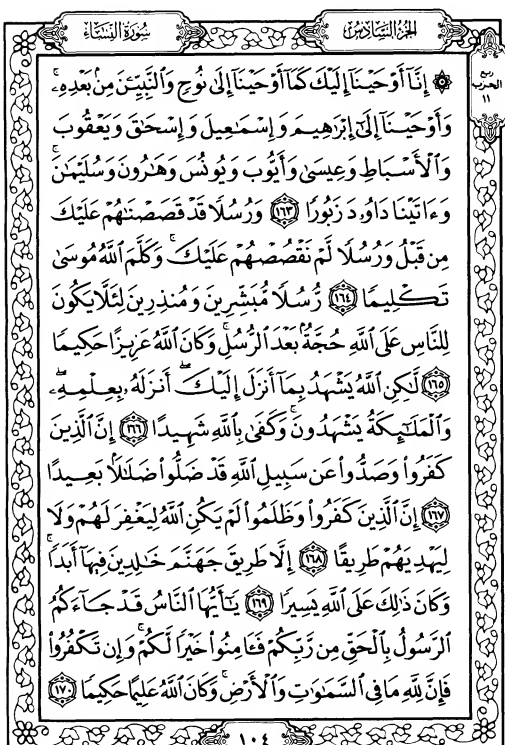 سُورَةُ النِّسَاءِ
الجُزْءُ السَّادِسُ
ربع
الحزب
١١
۞ إِنَّآ أَوْحَيْنَآ إِلَيْكَ كَمَآ أَوْحَيْنَآ إِلَىٰ نُوحٍ وَٱلنَّبِيِّـۧنَ مِنۢ بَعْدِهِۦۚ
وَأَوْحَيْنَآ إِلَىٰٓ إِبْرَٰهِيمَ وَإِسْمَـٰعِيلَ وَإِسْحَـٰقَ وَيَعْقُوبَ
وَٱلْأَسْبَاطِ وَعِيسَىٰ وَأَيُّوبَ وَيُونُسَ وَهَـٰرُونَ وَسُلَيْمَـٰنَۚ
وَءَاتَيْنَا دَاوُۥدَ زَبُورًا ١٦٣ وَرُسُلًا قَدْ قَصَصْنَـٰهُمْ عَلَيْكَ
مِن قَبْلُ وَرُسُلًا لَّمْ نَقْصُصْهُمْ عَلَيْكَۚ وَكَلَّمَ ٱللَّهُ مُوسَىٰ
تَكْلِيمًا ١٦٤ رُّسُلًا مُّبَشِّرِينَ وَمُنذِرِينَ لِئَلَّا يَكُونَ
لِلنَّاسِ عَلَى ٱللَّهِ حُجَّةٌۢ بَعْدَ ٱلرُّسُلِۚ وَكَانَ ٱللَّهُ عَزِيزًا حَكِيمًا
١٦٥ لَّـٰكِنِ ٱللَّهُ يَشْهَدُ بِمَآ أَنزَلَ إِلَيْكَۖ أَنزَلَهُۥ بِعِلْمِهِۦۖ
وَٱلْمَلَـٰٓئِكَةُ يَشْهَدُونَۚ وَكَفَىٰ بِٱللَّهِ شَهِيدًا ١٦٦ إِنَّ ٱلَّذِينَ
كَفَرُوا۟ وَصَدُّوا۟ عَن سَبِيلِ ٱللَّهِ قَدْ ضَلُّوا۟ ضَلَـٰلًۢا بَعِيدًا
١٦٧ إِنَّ ٱلَّذِينَ كَفَرُوا۟ وَظَلَمُوا۟ لَمْ يَكُنِ ٱللَّهُ لِيَغْفِرَ لَهُمْ وَلَا
لِيَهْدِيَهُمْ طَرِيقًا ١٦٨ إِلَّا طَرِيقَ جَهَنَّمَ خَـٰلِدِينَ فِيهَآ أَبَدًاۚ
وَكَانَ ذَٰلِكَ عَلَى ٱللَّهِ يَسِيرًا ١٦٩ يَـٰٓأَيُّهَا ٱلنَّاسُ قَدْ جَآءَكُمُ
ٱلرَّسُولُ بِٱلْحَقِّ مِن رَّبِّكُمْ فَـَٔامِنُوا۟ خَيْرًا لَّكُمْۚ وَإِن تَكْفُرُوا۟
فَإِنَّ لِلَّهِ مَا فِى ٱلسَّمَـٰوَٰتِ وَٱلْأَرْضِۚ وَكَانَ ٱللَّهُ عَلِيمًا حَكِيمًا ١٧٠
١٠٤